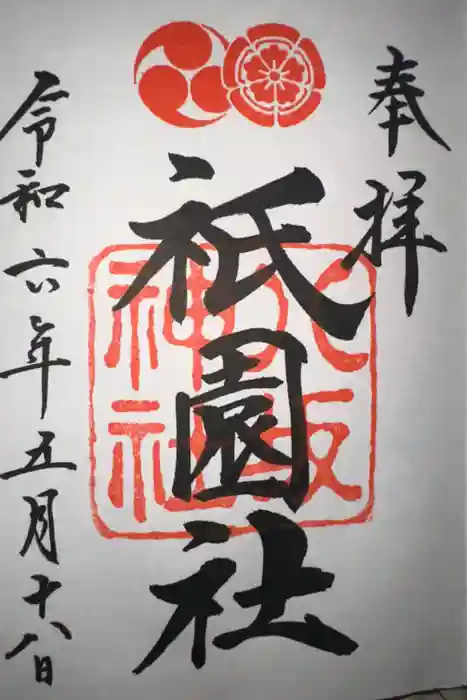 奉拝
祇園社
八坂
神社
令和六年五月十八日